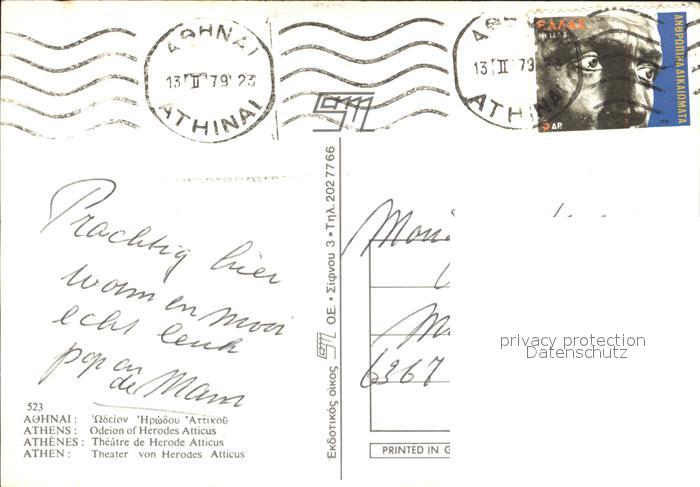 ΑΘΗΝΑΙ
13 II 79 23
ATHINAI
ΑΘΗΝΑΙ
13 II 79 23
ATHINAI
ΕΛΛΑΣ
HELLAS
ΔΡ
ΑΝΘΡΩΠΙΝΑ ΔΙΚΑΙΩΜΑΤΑ
Prachtig hier
warm en mooi
echt leuk
pap en
de Mam
523
ΑΘΗΝΑΙ : Ὠδεῖον Ἡρώδου Ἀττικοῦ
ATHENS : Odeion of Herodes Atticus
ATHÈNES : Théâtre de Herode Atticus
ATHEN : Theater von Herodes Atticus
Ἐκδοτικός οἶκος ΟΕ. • Σίφνου 3 • Τηλ. 2027766
6367
privacy protection
Datenschutz
PRINTED IN G